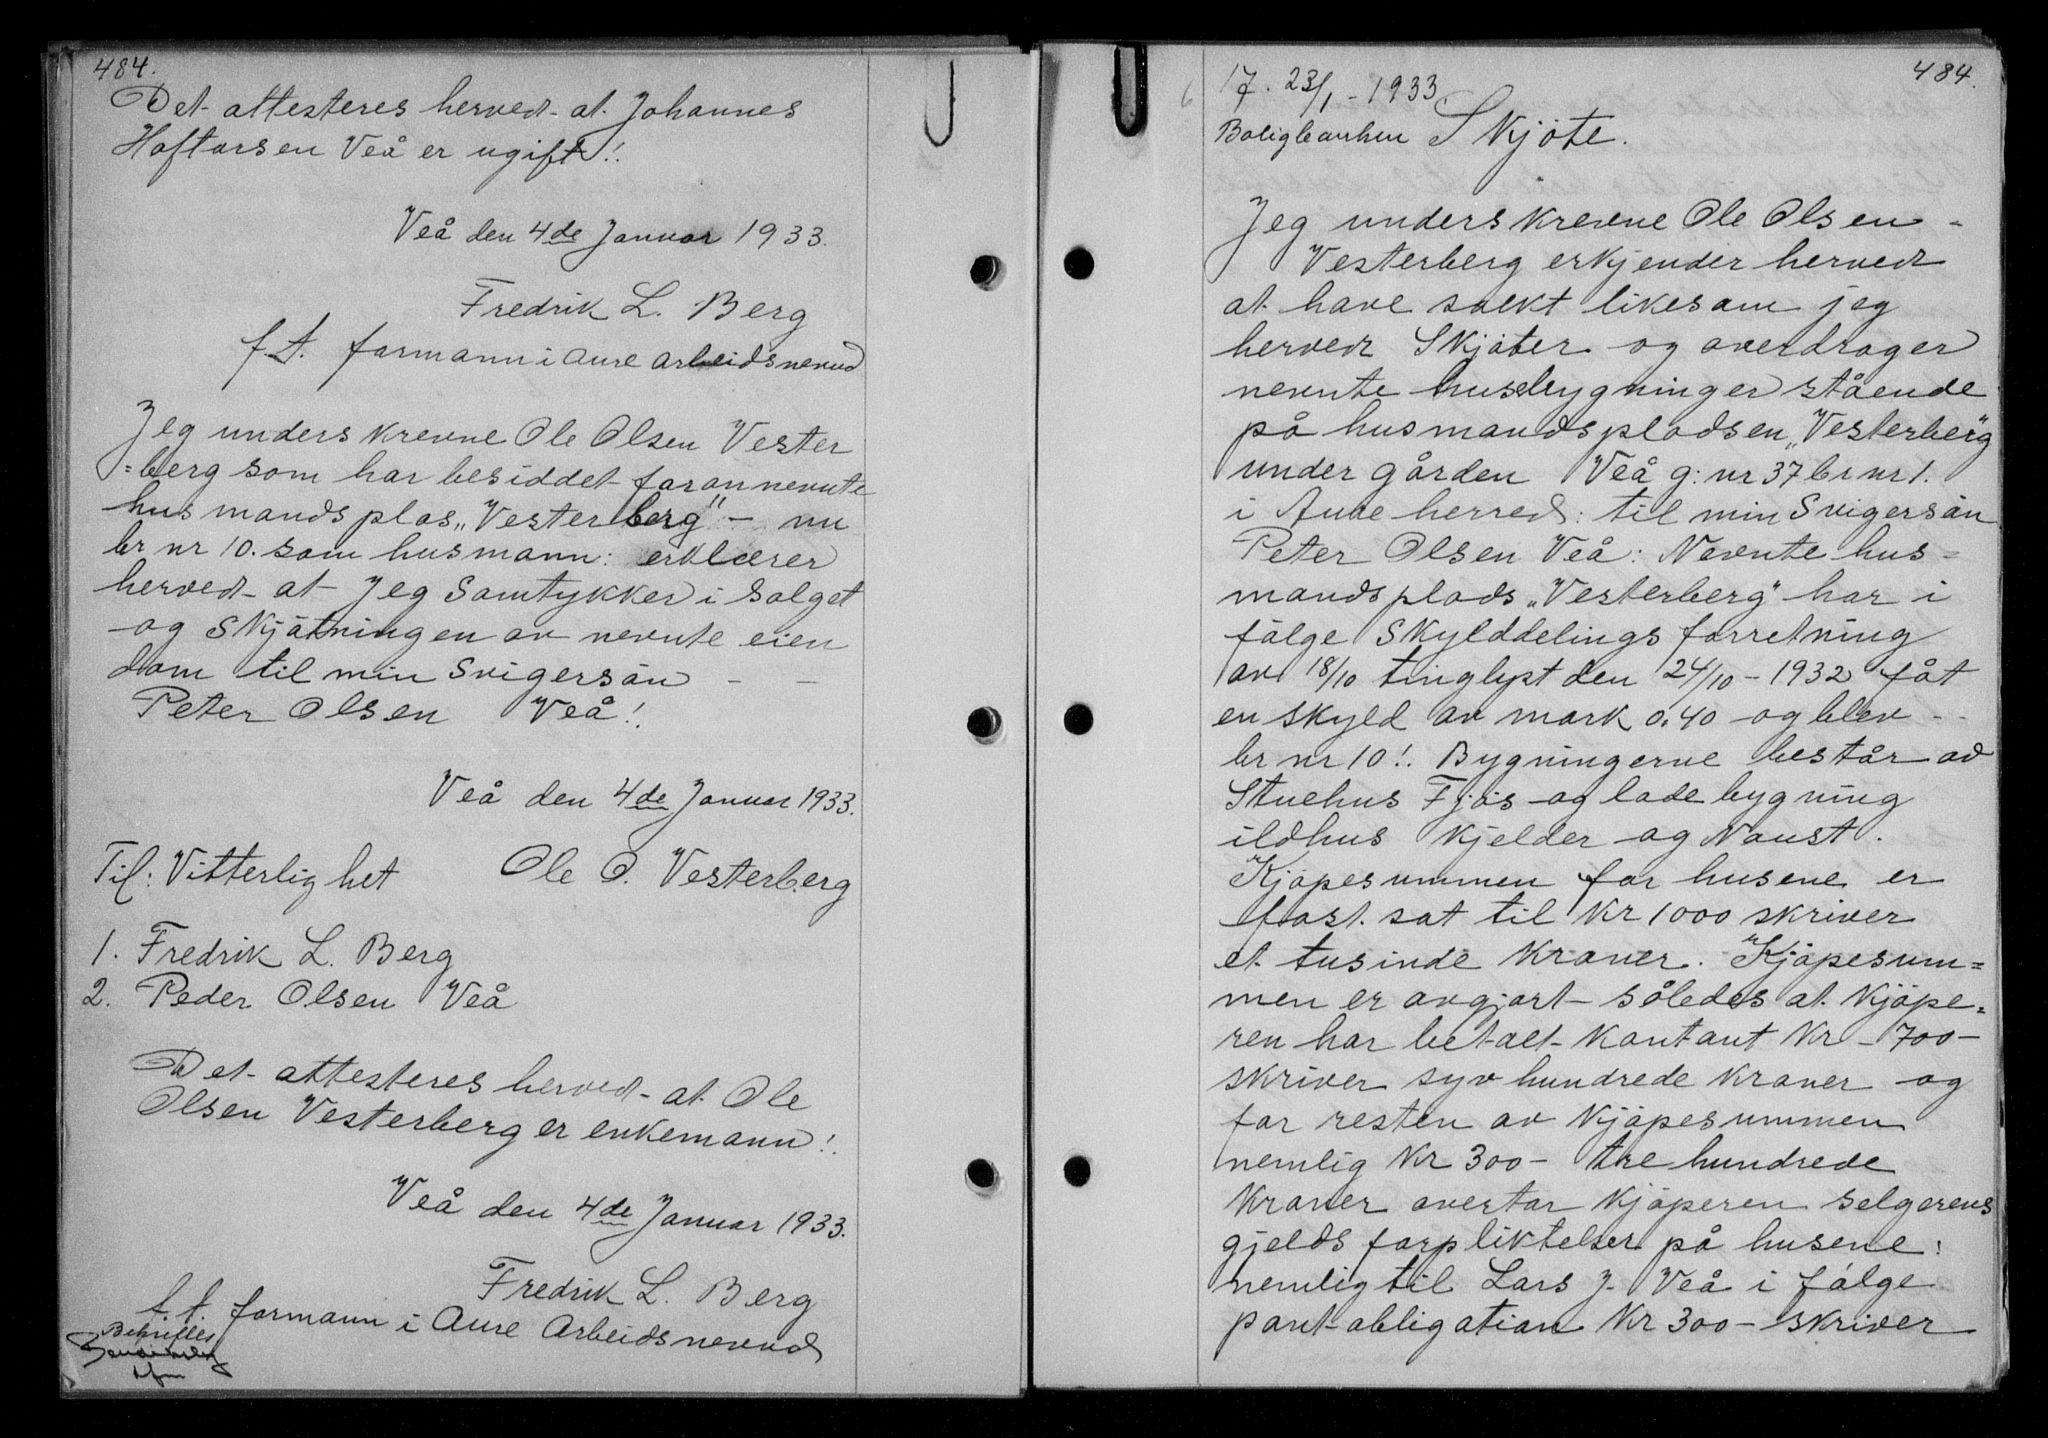 484.
Det attesteres herved at Johannes
Haftorsen Veå er ugift!.
Veå den 4de Januar 1933.
Fredrik L. Berg
f.t. formann i Aure arbeidsnevnd
Jeg underskrevne Ole Olsen Vester
=berg som har besiddet forannevnte
husmandsplas „Vesterberg" – nu
br nr 10. som husmann: erklærer
herved at Jeg Samtykker i Salget
og Skjøtningen av nevnte eien
dom til min Svigersøn – –
Peter Olsen Veå!.
Veå den 4de Januar 1933.
Til: Vitterlighet Ole O. Vesterberg
1. Fredrik L. Berg
2. Peder Olsen Veå
Det attesteres herved at Ole
Olsen Vesterberg er enkemann!.
Veå den 4de Januar 1933.
Fredrik L. Berg
f.t. formann i Aure Arbeidsnevnd
Bekreftes
484.
17. 23/1 - 1933
Boligbanken Skjøte.
Jeg underskrevne Ole Olsen -
Vesterberg erkjender herved
at have solkt likesom jeg
herved Skjøter og overdrager
nevnte husbygninger stående
på husmandspladsen „Vesterberg"
under gården Veå g: nr 37 br nr 1.
i Aure herred: til min Svigersøn
Peter Olsen Veå: Nevnte hus=
mandsplads „Vesterberg" har i
følge Skylddelings forretning
av 18/10 tinglyst den 24/10 - 1932 fåt
en skyld av mark 0.40 og blev -
br nr 10!. Bygningerne består ad
Stuehus Fjøs og lade bygning
ildhus kjelder og Naust.
Kjøpesummen for husene er
fast sat til Kr 1000 skriver
et tusinde Kroner. Kjøpesum=
men er avgjort således at kjøpe=
ren har betalt kontant Kr - 700 -
skriver syv hundrede kroner og
for resten av kjøpesummen
nemlig Kr 300 - tre hundrede
Kroner overtar kjøperen selgerens
gjelds forpliktelser på husene:
nemlig til Lars J. Veå i følge
pant-obligation Kr 300 - skriver